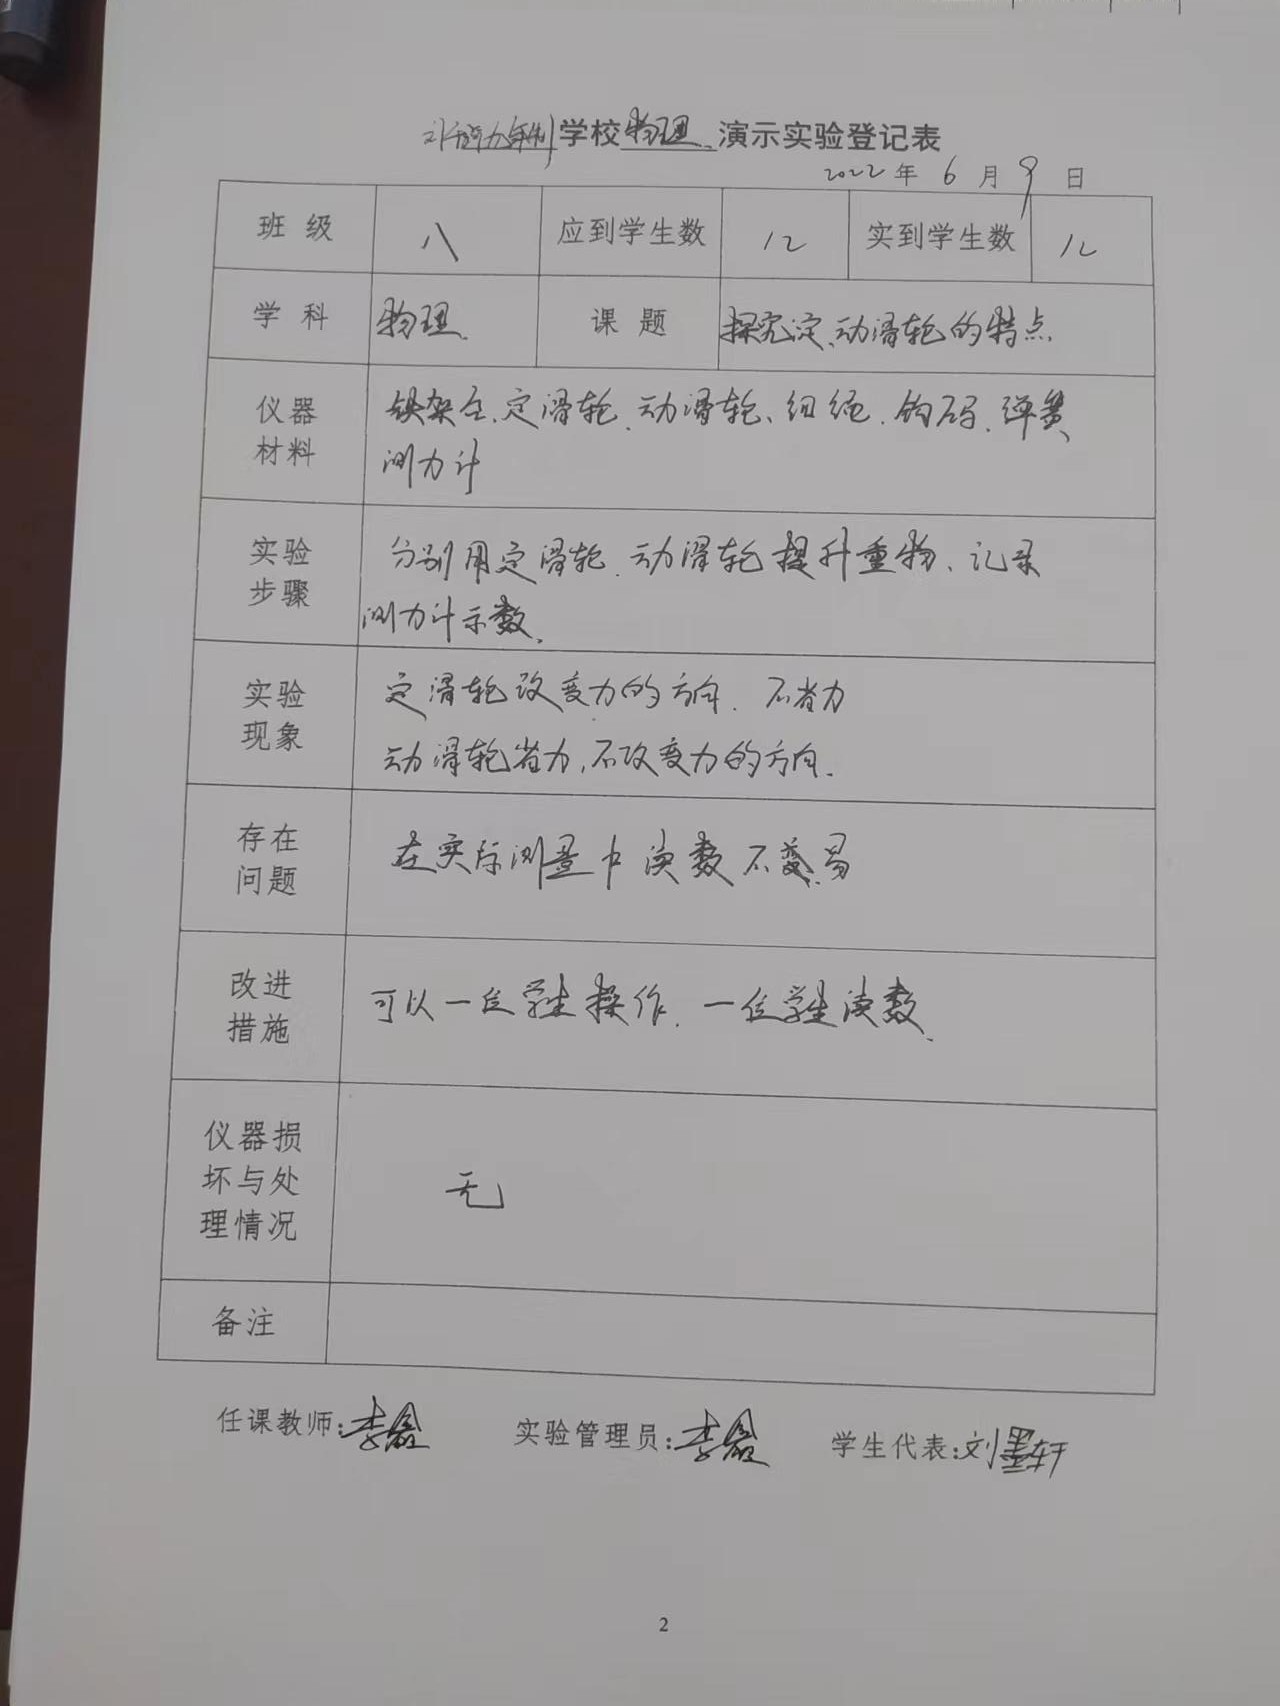 九年制学校物理演示实验登记表
2022年6月9日
班级 八 应到学生数 12 实到学生数 12
学科 物理 课题 探究定、动滑轮的特点
仪器材料 铁架台、定滑轮、动滑轮、细绳、钩码、弹簧
测力计
实验步骤 分别用定滑轮、动滑轮提升重物、记录
测力计示数、
实验现象 定滑轮改变力的方向、不省力
动滑轮省力,不改变力的方向.
存在问题 在实际测量中读数不易
改进措施 可以一位学生操作、一位学生读数、
仪器损坏与处理情况 无
备注
任课教师:李鑫 实验管理员:李鑫 学生代表:刘墨轩
2